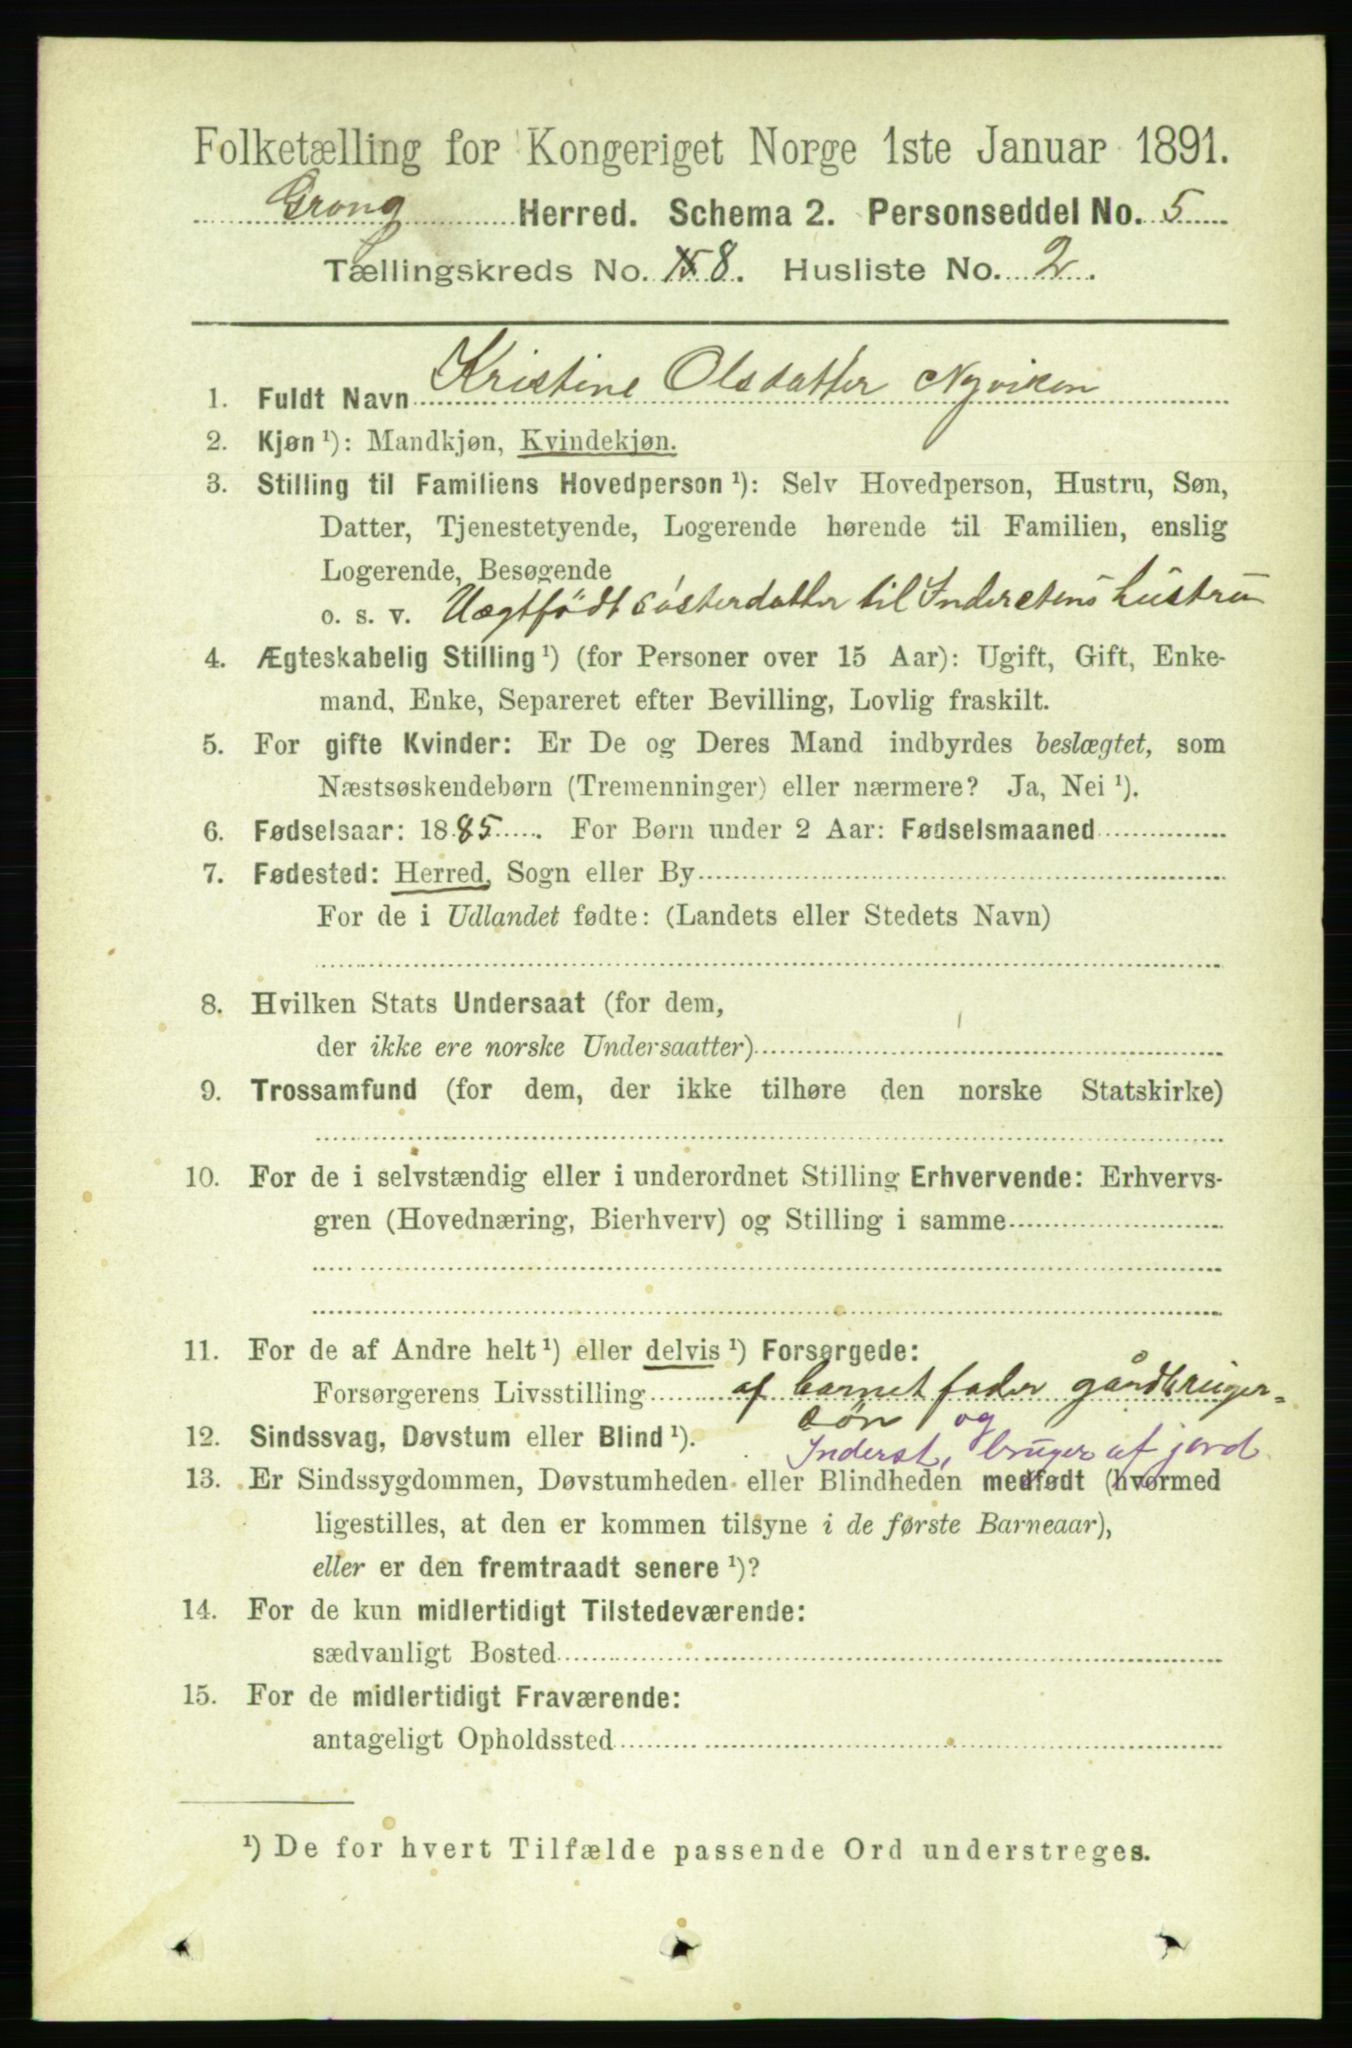 Folketælling for Kongeriget Norge 1ste Januar 1891.
Grong Herred. Schema 2. Personseddel No. 5
Tællingskreds No. 8. Husliste No. 2.
1. Fuldt Navn Kristine Olsdatter Nyviken
2. Kjøn ¹): Mandkjøn, Kvindekjøn.
3. Stilling til Familiens Hovedperson ¹): Selv Hovedperson, Hustru, Søn,
Datter, Tjenestetyende, Logerende hørende til Familien, enslig
Logerende, Besøgende
o. s. v. Uægtfødt søsterdatter til Inderstens hustru
4. Ægteskabelig Stilling ¹) (for Personer over 15 Aar): Ugift, Gift, Enke-
mand, Enke, Separeret efter Bevilling, Lovlig fraskilt.
5. For gifte Kvinder: Er De og Deres Mand indbyrdes beslægtet, som
Næstsøskendebørn (Tremenninger) eller nærmere? Ja, Nei ¹).
6. Fødselsaar: 1885. For Børn under 2 Aar: Fødselsmaaned
7. Fødested: Herred, Sogn eller By
For de i Udlandet fødte: (Landets eller Stedets Navn)
8. Hvilken Stats Undersaat (for dem,
der ikke ere norske Undersaatter)
9. Trossamfund (for dem, der ikke tilhøre den norske Statskirke)
10. For de i selvstændig eller i underordnet Stilling Erhvervende: Erhvervs-
gren (Hovednæring, Bierhverv) og Stilling i samme
11. For de af Andre helt ¹) eller delvis ¹) Forsørgede:
Forsørgerens Livsstilling af barnet fader gårdbruger-
søn og
12. Sindssvag, Døvstum eller Blind ¹). Inderst, bruger af jord
13. Er Sindssygdommen, Døvstumheden eller Blindheden medfødt (hvormed
ligestilles, at den er kommen tilsyne i de første Barneaar),
eller er den fremtraadt senere ¹)?
14. For de kun midlertidigt Tilstedeværende:
sædvanligt Bosted
15. For de midlertidigt Fraværende:
antageligt Opholdssted
¹) De for hvert Tilfælde passende Ord understreges.